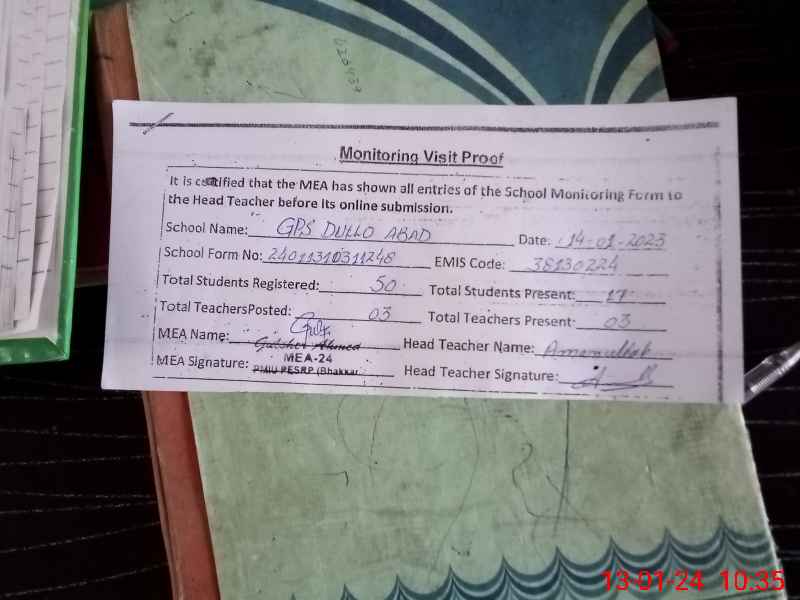 Monitoring Visit Proof
It is certified that the MEA has shown all entries of the School Monitoring Form to
the Head Teacher before its online submission.
School Name: GPS DULLO ABAD Date: 14-01-2023
School Form No: 24011310311248 EMIS Code: 38130224
Total Students Registered: 50 Total Students Present: 17
Total TeachersPosted: 03 Total Teachers Present: 03
MEA Name: Gulsher Ahmed Head Teacher Name: Amanullah
MEA-24
MEA Signature: PMIU PESRP (Bhakkar Head Teacher Signature:
13-01-24 10:35